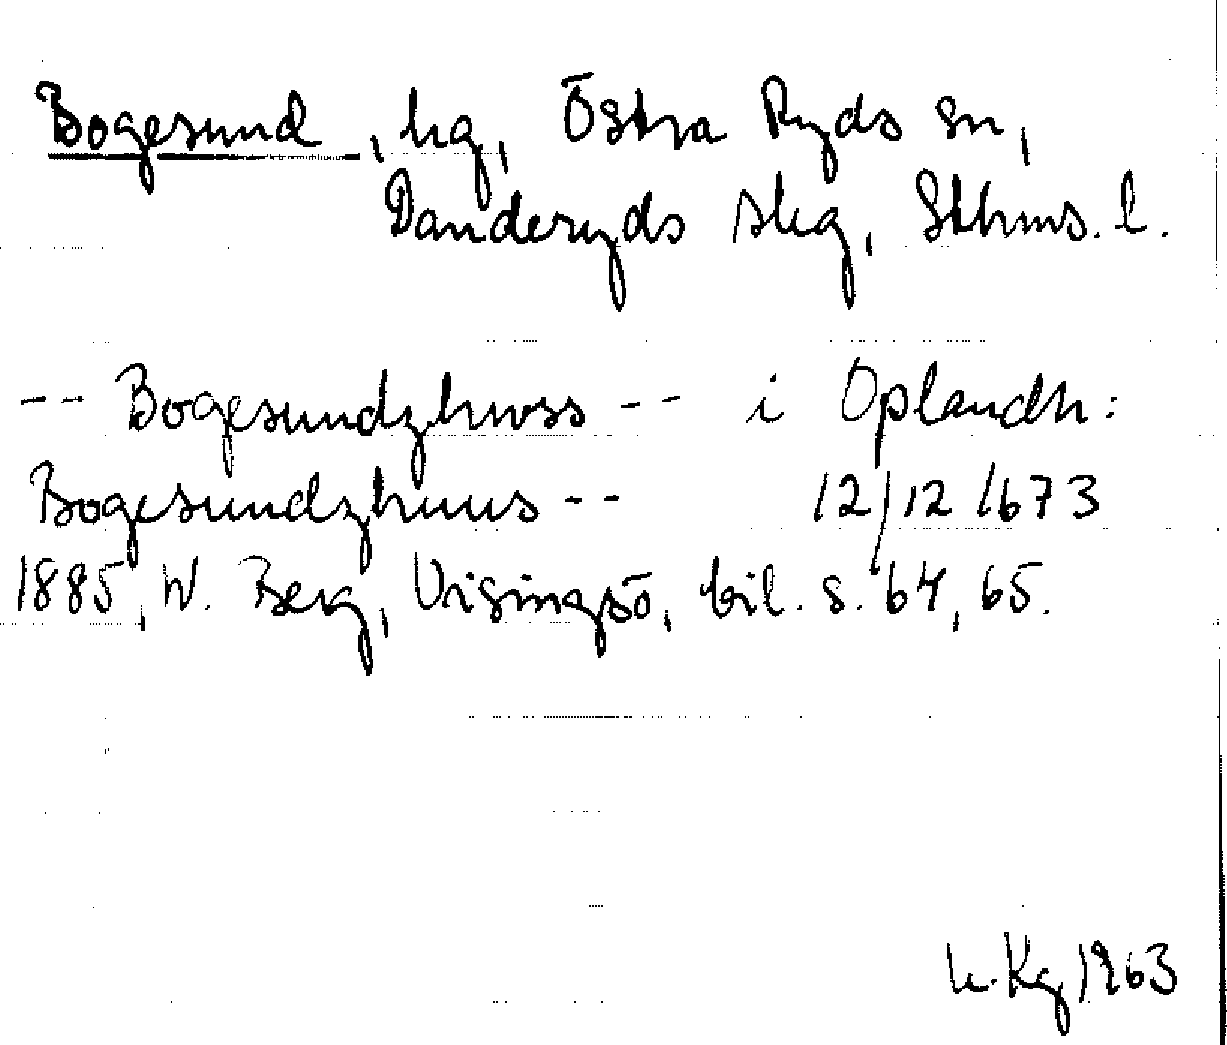 Bogesund, hg, Östra Ryds sn,
Danderyds skg, Sthms. l.
-- Bogesundzhwss -- i Oplandh:
Bogesundzhuus -- 12/12 1673
1885, W. Berg, Visingsö, bil. s. 64, 65.
Kg 1963